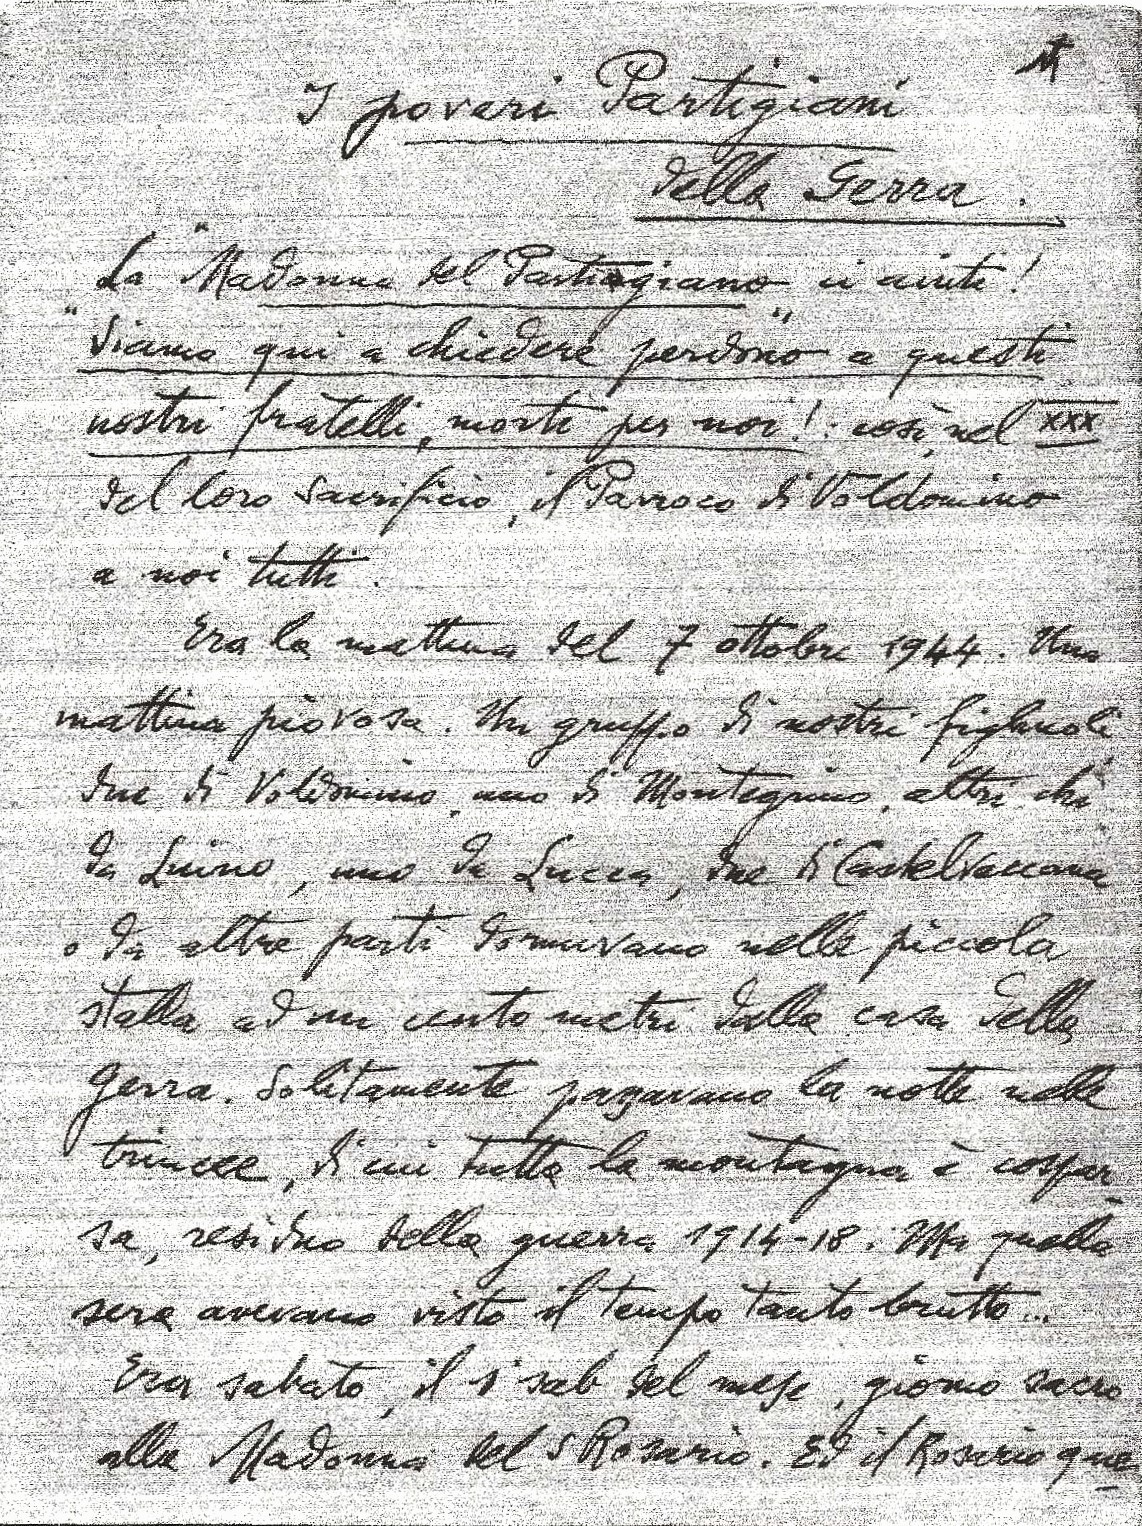 I poveri Partigiani
della Gerra.
La "Madonna del Partigiano" ci aiuti!
"Siamo qui a chiedere perdono" a questi
nostri fratelli, morti per noi!: così, nel XXX
del loro sacrificio, il Parroco di Voldomino
a noi tutti.
Era la mattina del 7 ottobre 1944. Una
mattina piovosa. Un gruppo di nostri figliuoli,
due di Voldomino, uno di Montegrino, altri chi
da Luino, uno da Lucca, due di Castelvaccana
o da altre parti dormivano nella piccola
stalla ad un cento metri dalla casa della
Gerra. Solitamente passavano la notte nelle
trincee, di cui tutta la montagna è cospar-
sa, residuo della guerra 1914-18. Ma quella
sera avevano visto il tempo tanto brutto...
Era sabato, il 1° sab del mese, giorno sacro
alla Madonna del S Rosario. Ed il Rosario que-